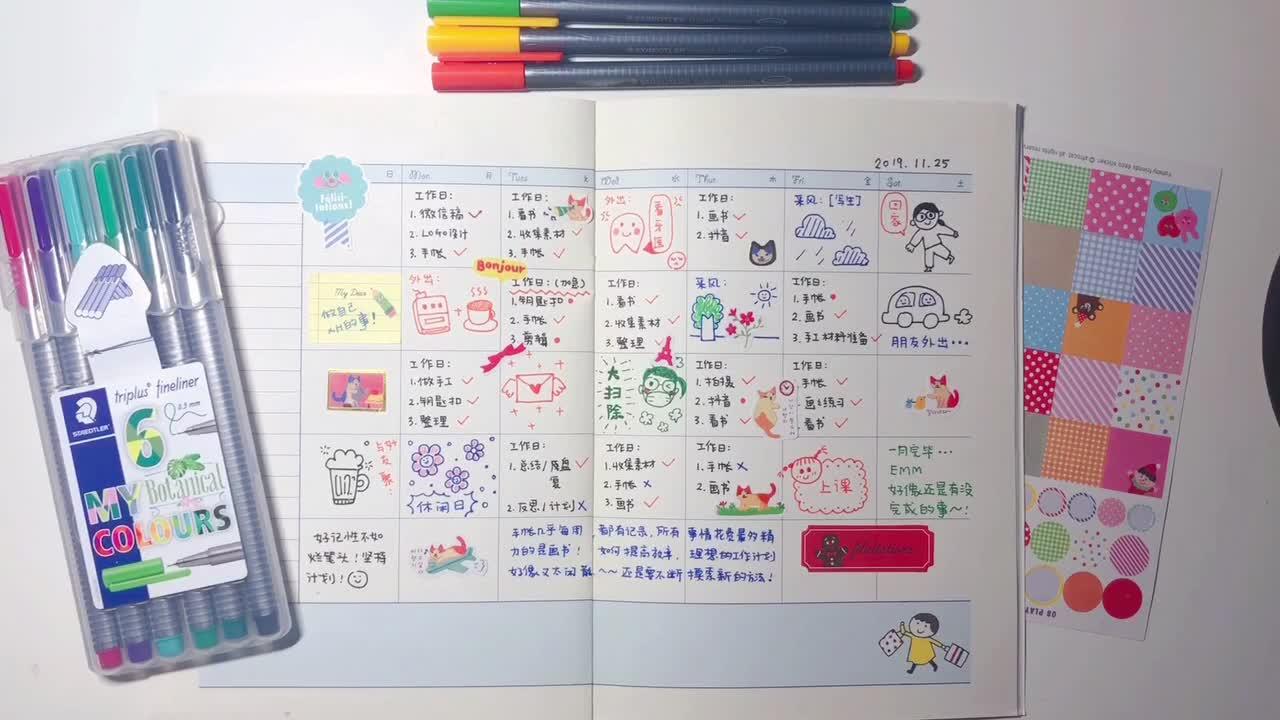 STAEDTLER
2019.11.25
日 Mon. 月 Tue. 火 Wed. 水 Thur. 木 Fri. 金 Sat. 土
Felici-
tations!
工作日:
1. 微信稿 ✓
2. LOGO设计
3. 手帐 ✓
工作日:
1. 看书
2. 收集素材 ✓
3. 手帐 ✓
外出:
看牙医
工作日:
1. 画书 ✓
2. 抖音 ✓
采风: [写生]
回家
My Dear
做自己
的事!
外出:
Bonjour
工作日:(加急)
1. 钥匙扣
2. 手帐
3. 剪辑
工作日:
1. 看书 ✓
2. 收集素材 ✓
3. 整理 ✓
采风:
工作日:
1. 手帐
2. 画书 ✓
3. 手工材料准备 ✓
朋友外出...
工作日:
1. 做手工 ✓
2. 钥匙扣 ✓
3. 整理 ✓
大扫除
工作日:
1. 拍摄 ✓
2. 抖音
3. 看书 ✓
工作日:
1. 手帐 ✓
2. 画画练习 ✓
3. 看书 ✓
与好友聚..
休闲日
工作日:
1. 总结/复盘 ✓
2. 反思/计划 ✗
工作日:
1. 收集素材 ✓
2. 手帐 ✗
3. 画书 ✓
工作日:
1. 手帐 ✗
2. 画书 ✓
上课
一月完毕...
EMM
好像还是有没
完成的事~!
好记性不如
烂笔头!坚持
计划!
手帐几乎每周都有记录,所有事情花费最多精
力的是画书!如何提高效率,理想的工作计划
好像又太闲散~~还是要不断探索新的方法!
felicitations
triplus® fineliner
0.3 mm
STAEDTLER
6
MY Botanical
COLOURS
08 PLAY